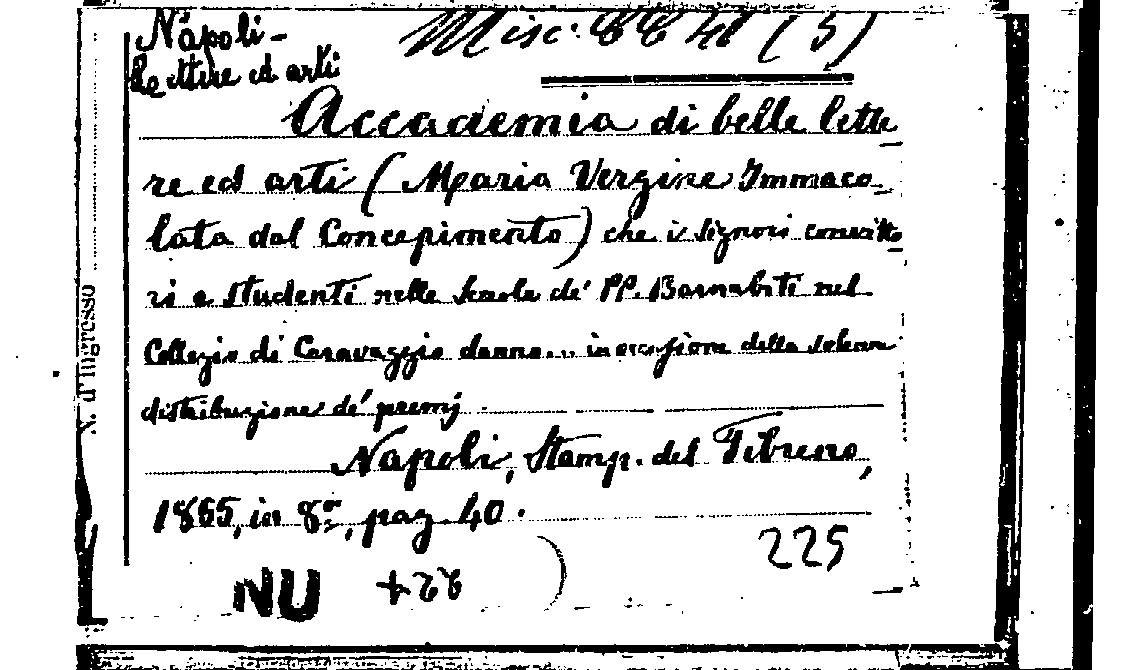 Napoli -
Lettere ed arti
Misc. (5)
Accademia di belle lette_
re ed arti (Maria Vergine Immaco_
lata dal Concepimento) che i signori convitto_
ri e studenti nelle Scuole de' PP. Barnabiti nel
Collegio di Caravaggio danno... in occasione della solenne
distribuzione de' premj
Napoli, Stamp. del Fibreno,
1865, in 8º, pag. 40.
225
NU
N. d'Ingresso